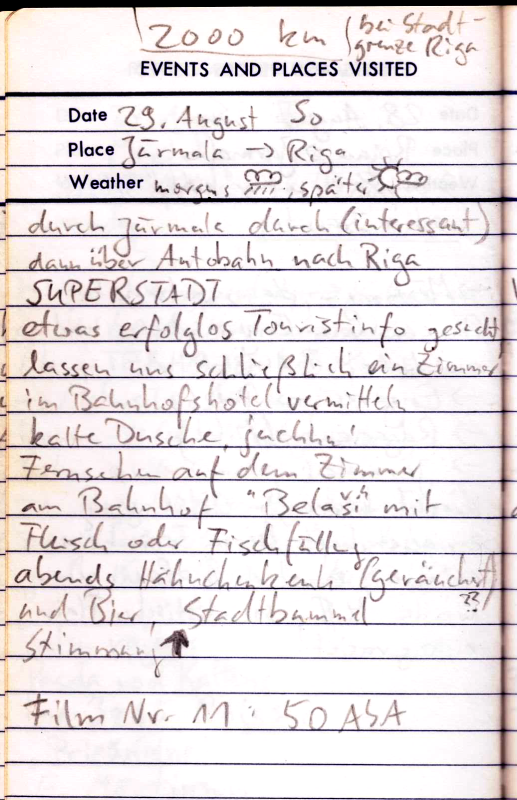 2000 km (bei Stadt-
grenze Riga
EVENTS AND PLACES VISITED
Date 29. August So
Place Jūrmala → Riga
Weather morgens , später
durch Jūrmala durch (interessant)
dann über Autobahn nach Riga
SUPERSTADT
etwas erfolglos Touristinfo gesucht
lassen uns schließlich ein Zimmer
im Bahnhofshotel vermitteln
kalte Dusche, juchhu!
Fernsehen auf dem Zimmer
am Bahnhof "Belaši" mit
Fleisch oder Fischfüllung
abends Hähnchenkeule (geräuchert
??)
und Bier, Stadtbummel
Stimmung ↑
Film Nr. 11 : 50 ASA